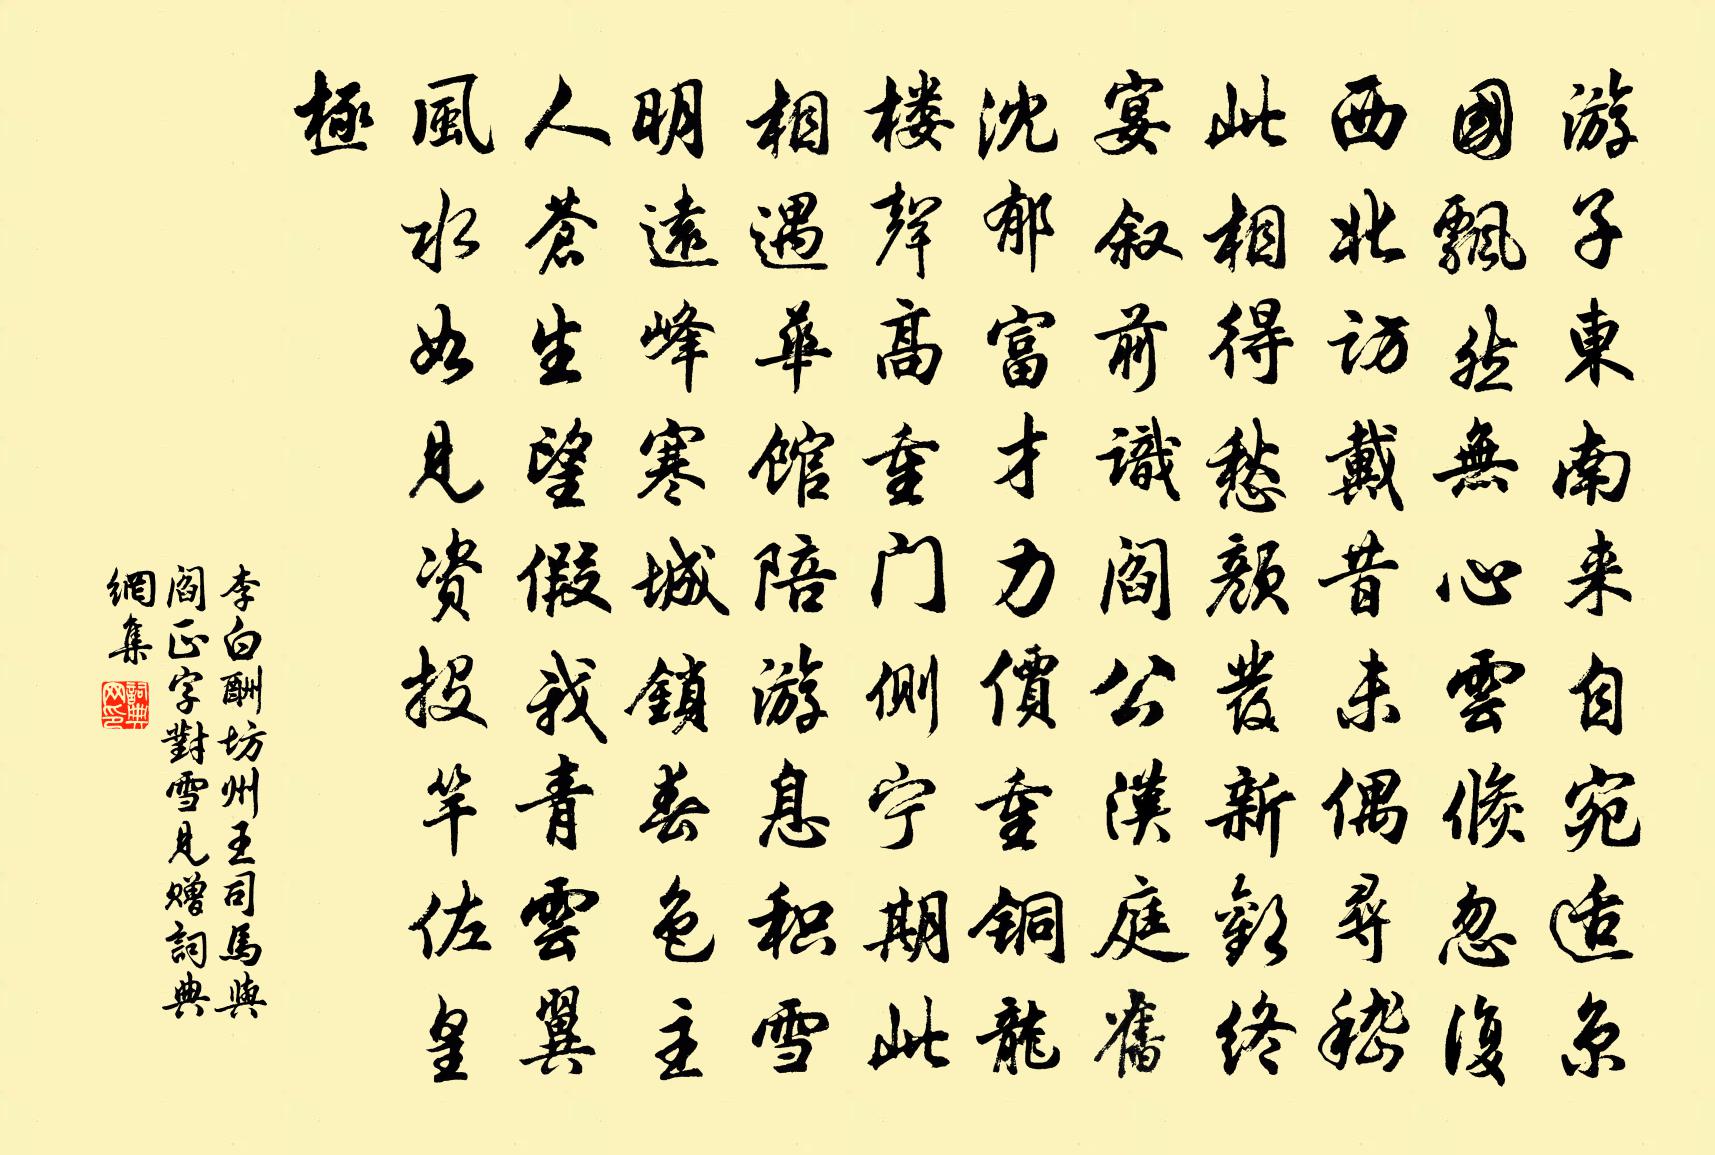 游子東南来自宛适京
國飄然無心雲倏忽復
西北訪戴昔未偶尋嵇
此相得愁顏發新歡終
宴叙前識閻公漢庭舊
沈郁富才力價重铜龍
楼聲高重门側宁期此
相遇華馆陪游息积雪
明遠峰寒城鎖春色主
人蒼生望假我青雲翼
風水如見资投竿佐皇
極
李白酬坊州王司馬與
閻正字對雪見赠詞典
網集
詞典网印